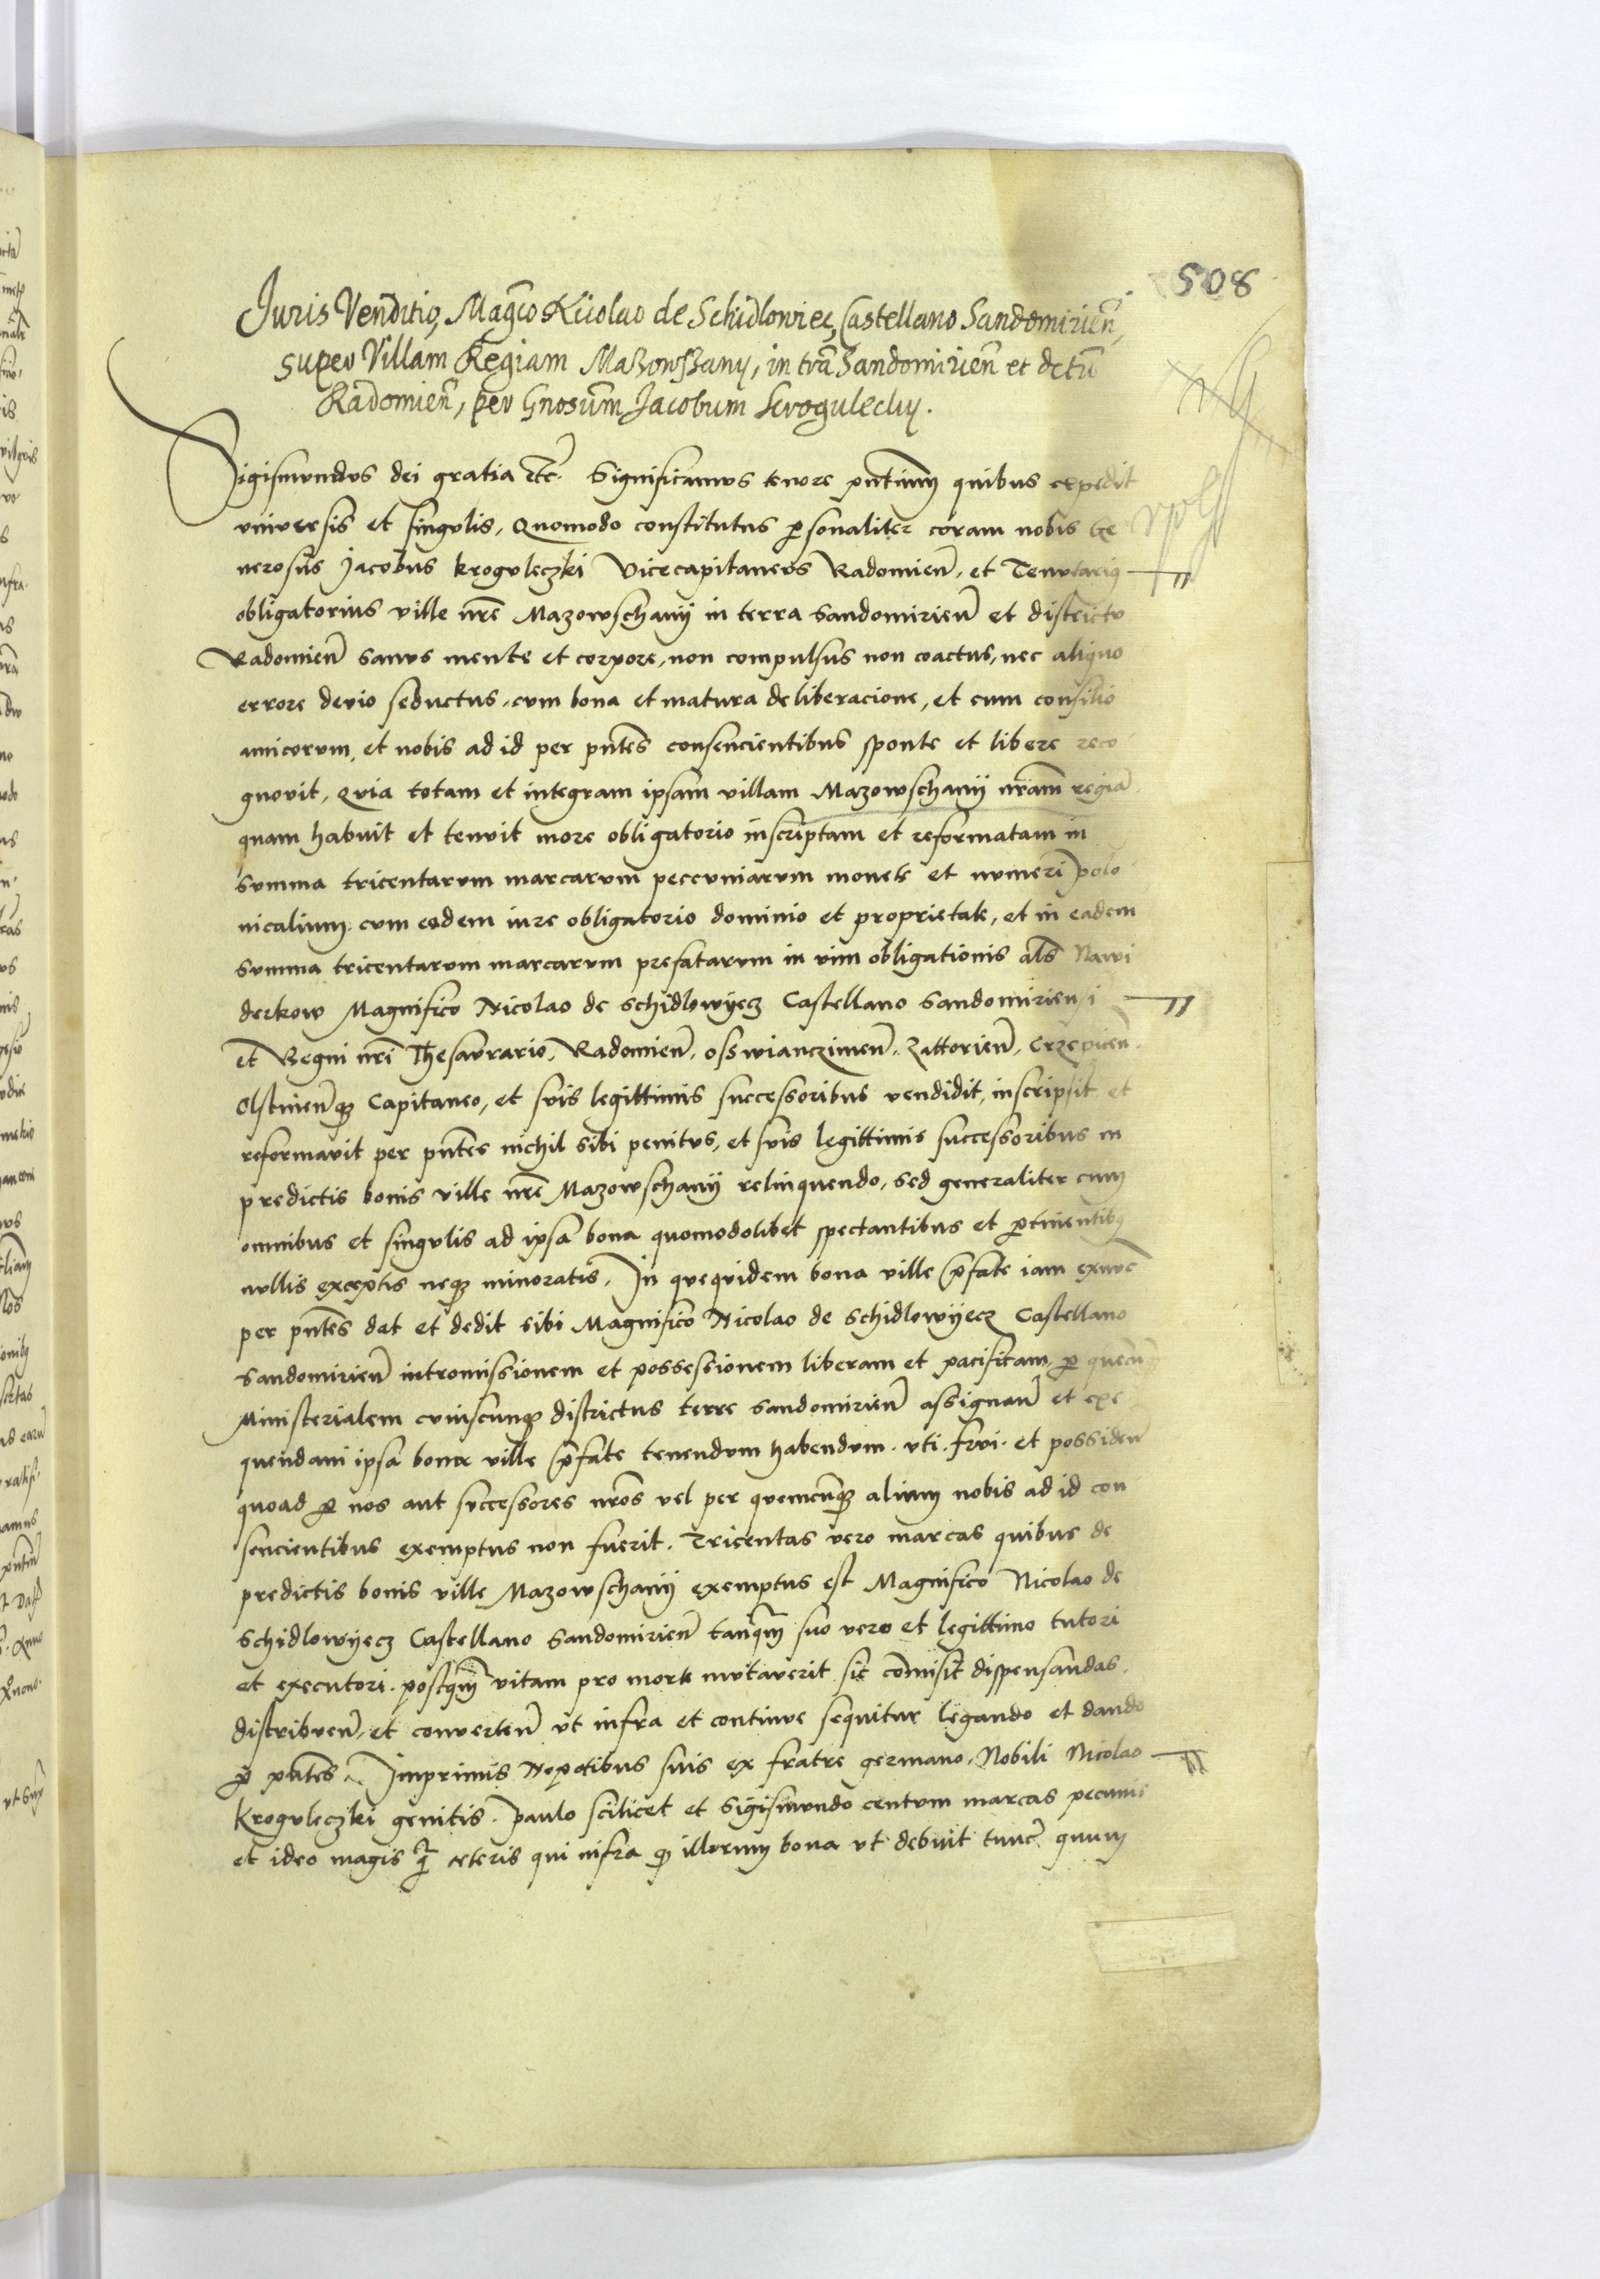 508
Juris Venditio, Magco Nicolao de Schidlowiec, Castellano Sandomirien̄,
super Villam Regiam Mazowszany, in tra Sandomirien̄ et dctu
Radomien̄, per Gnosum Jacobum Kroguleczky.
Sigismundus dei gratia etc. Significamus tenore pntium quibus expedit
universis et singulis, Quomodo constitutus personaliter coram nobis Ge
nerosus Jacobus kroguleczki Vicecapitaneus Radomien̄, et Tenutarius
obligatorius ville nre Mazowschanij in terra sandomirien̄ et districtu
Radomien̄ sanus mente et corpore, non compulsus non coactus, nec aliquo
errore devio seductus, cum bona et matura deliberacione, et cum consilio
amicorum, et nobis ad id per pntes consencientibus sponte et libere reco
gnovit, Quia totam et integram ipsam villam Mazowschanij nram regia
quam habuit et tenuit more obligatorio inscriptam et reformatam in
summa tricentarum marcarum peccuniarum monete et numeri polo
nicalium, cum eodem iure obligatorio dominio et proprietate, et in eadem
summa tricentarum marcarum prefatarum in vim obligationis als Nawi
derkow Magnifico Nicolao de schidlowyecz Castellano sandomiriensi
et Regni nri Thesaurario, Radomien̄, osswianczimen̄, Zattorien̄, Crzepicen̄
Olstinenq̄ Capitaneo, et suis legittimis successoribus vendidit, inscripsit et
reformavit per pntes nichil sibi penitus, et suis legittimis successoribus in
predictis bonis ville nre Mazowschanij relinquendo, sed generaliter cum
omnibus et singulis ad ipsa bona quomodolibet spectantibus et ptinentibus
nullis exceptis neqȝ minoratis, In quequidem bona ville pfate iam exnuc
per pntes dat et dedit sibi Magnifico Nicolao de schidlowyecz Castellano
sandomirien̄ intromissionem et possessionem liberam et pacificam, p quecu
Ministerialem cuiuscunqȝ districtus terre sandomirien̄ assignan̄ et exe
quendam ipsa bona ville pfate tenendum habendum, uti, frui, et possiden̄
quoad p nos aut successores nros vel per quemcunqȝ alium nobis ad id con
sencientibus exemptus non fuerit. Tricentas vero marcas quibus de
predictis bonis ville Mazowschanij exemptus est Magnifico Nicolao de
schidlowyecz Castellano sandomirien̄ tanqm suo vero et legittimo tutori
et executori, postqm vitam pro morte mutaverit sic comisit dispensandas,
distribuen̄, et converten̄ ut infra et continue sequitur legando et dando
p pntes. Imprimis Nepotibus suis ex fratre germano, Nobili Nicolao
kroguleczki genitis, paulo scilicet et Sigismundo centum marcas pecunie
et ideo magis q̄ ceteris qui infra qȝ illorum bona ut debuit tunc quum